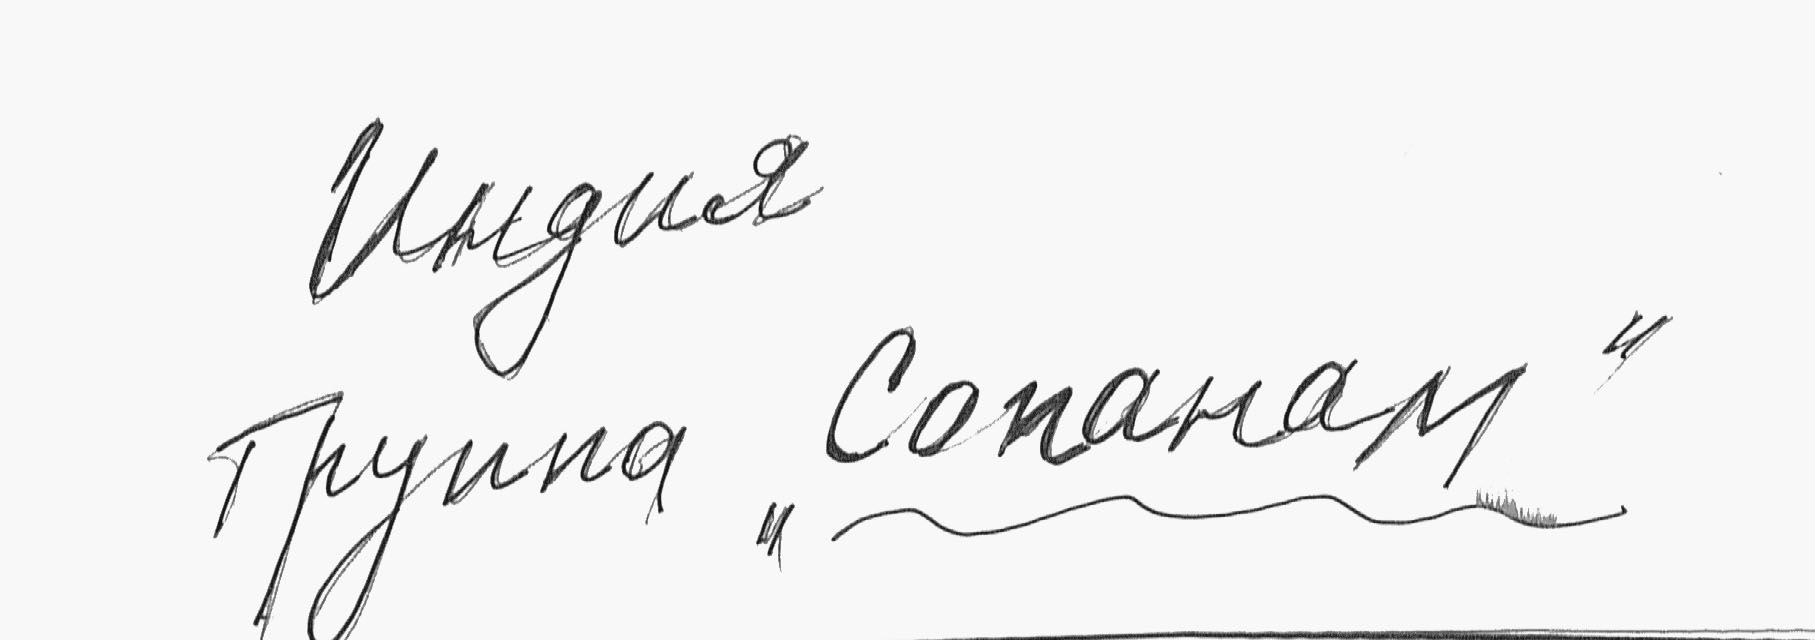 Индия
Группа „Сопанам"